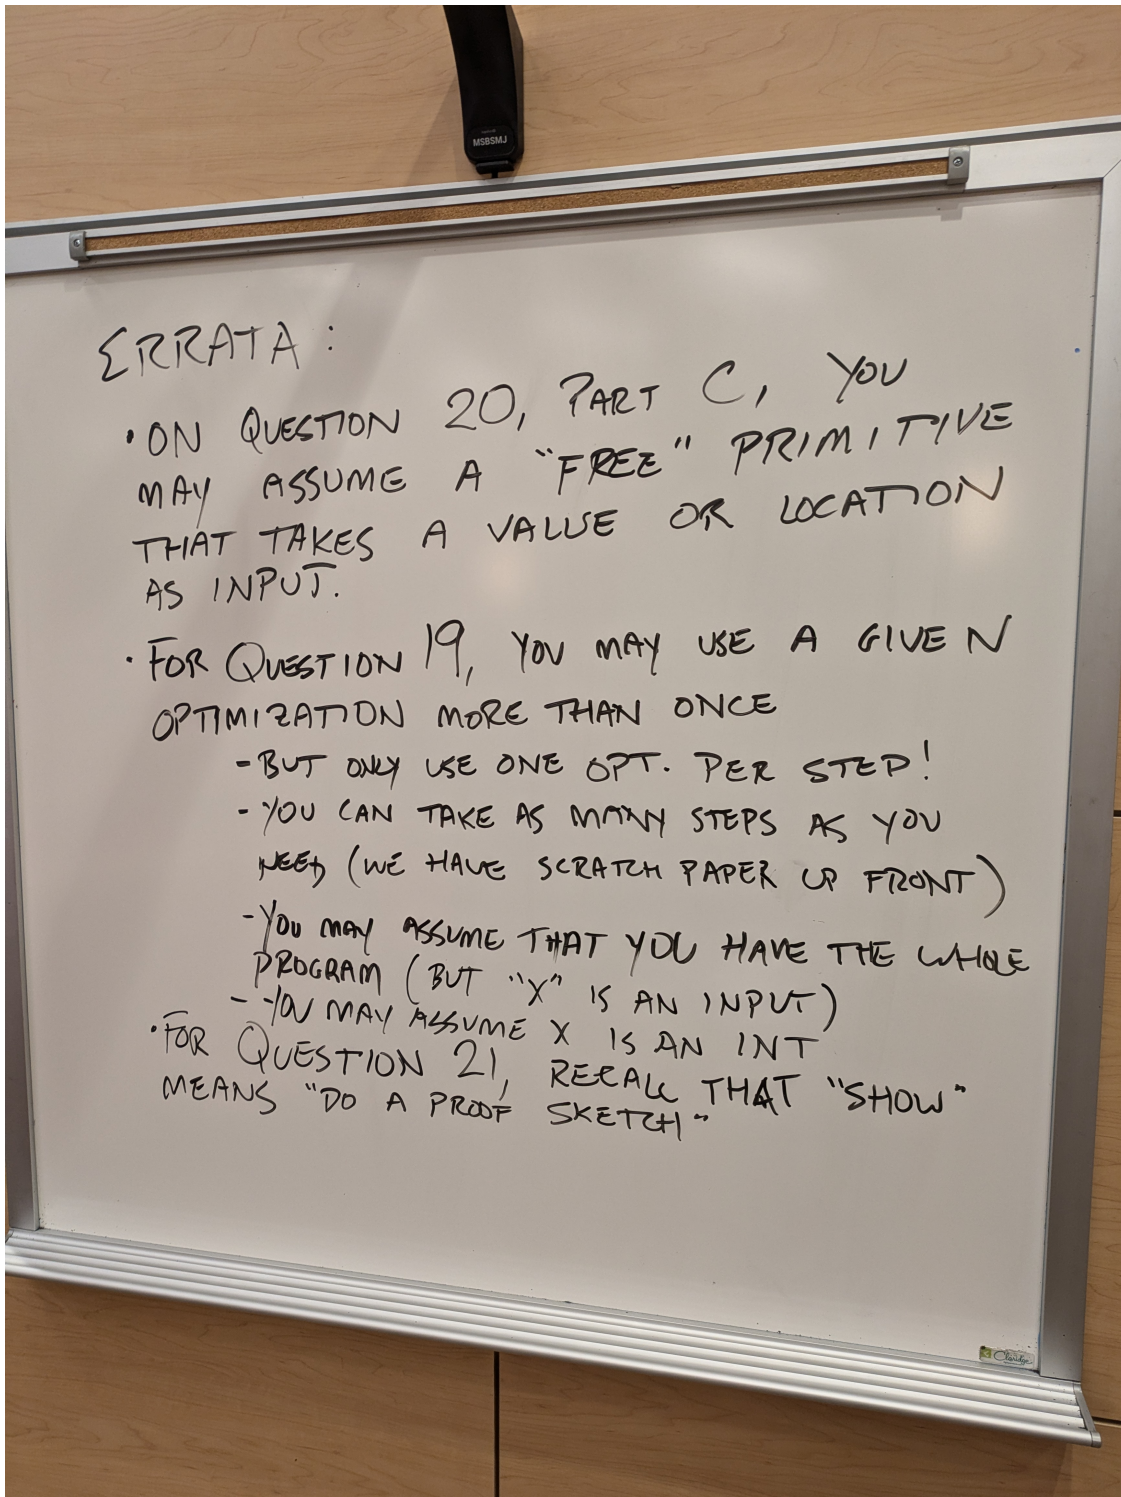 MSBSMJ
ERRATA:
• ON QUESTION 20, PART C, YOU
MAY ASSUME A "FREE" PRIMITIVE
THAT TAKES A VALUE OR LOCATION
AS INPUT.
• FOR QUESTION 19, YOU MAY USE A GIVEN
OPTIMIZATION MORE THAN ONCE
- BUT ONLY USE ONE OPT. PER STEP!
- YOU CAN TAKE AS MANY STEPS AS YOU
NEED (WE HAVE SCRATCH PAPER UP FRONT)
- YOU MAY ASSUME THAT YOU HAVE THE WHOLE
PROGRAM (BUT "X" IS AN INPUT)
- YOU MAY ASSUME X IS AN INT
• FOR QUESTION 21, RECALL THAT "SHOW"
MEANS "DO A PROOF SKETCH"
Claridge